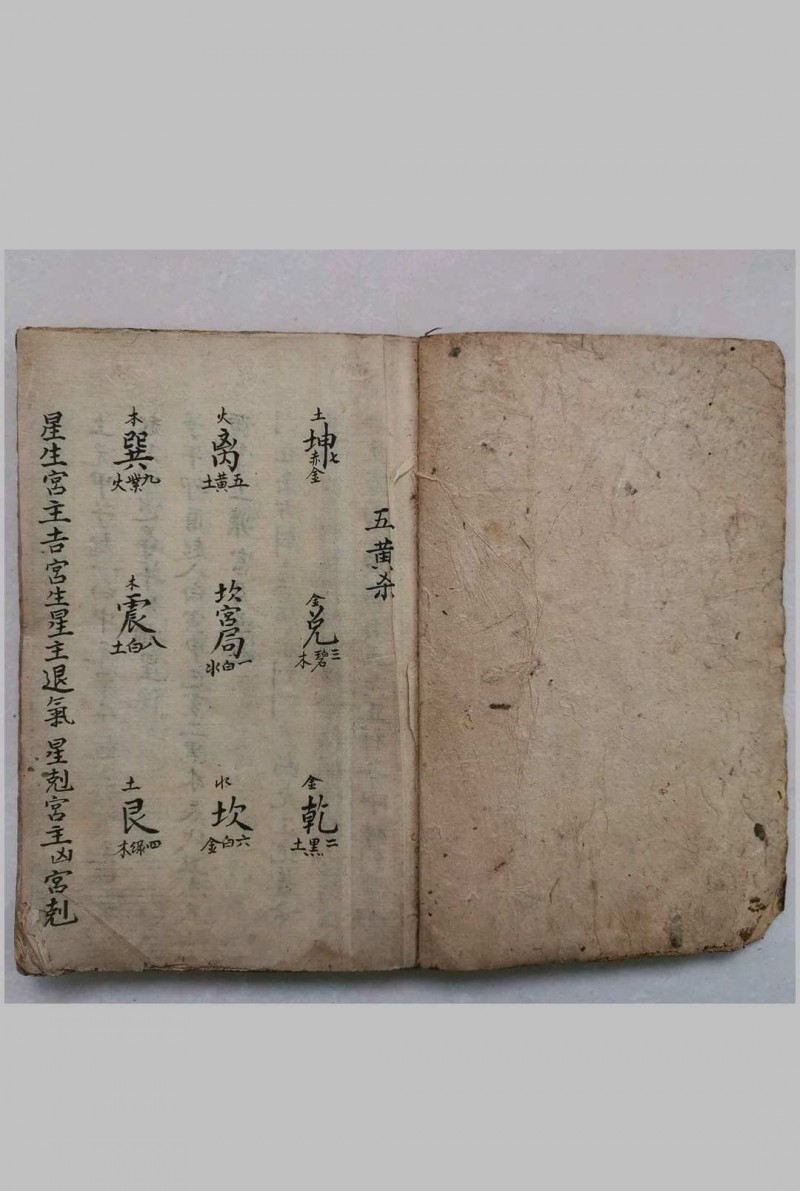 五黄杀
土
坤
七赤金
金
兑
三碧木
金
乾
二黑土
火
离
五黄土
坎宮局
一白水
水
坎
六白金
木
巽
九紫火
木
震
八白土
土
艮
四绿木
星生宮主吉宮生星主退氣 星剋宮主凶宮剋